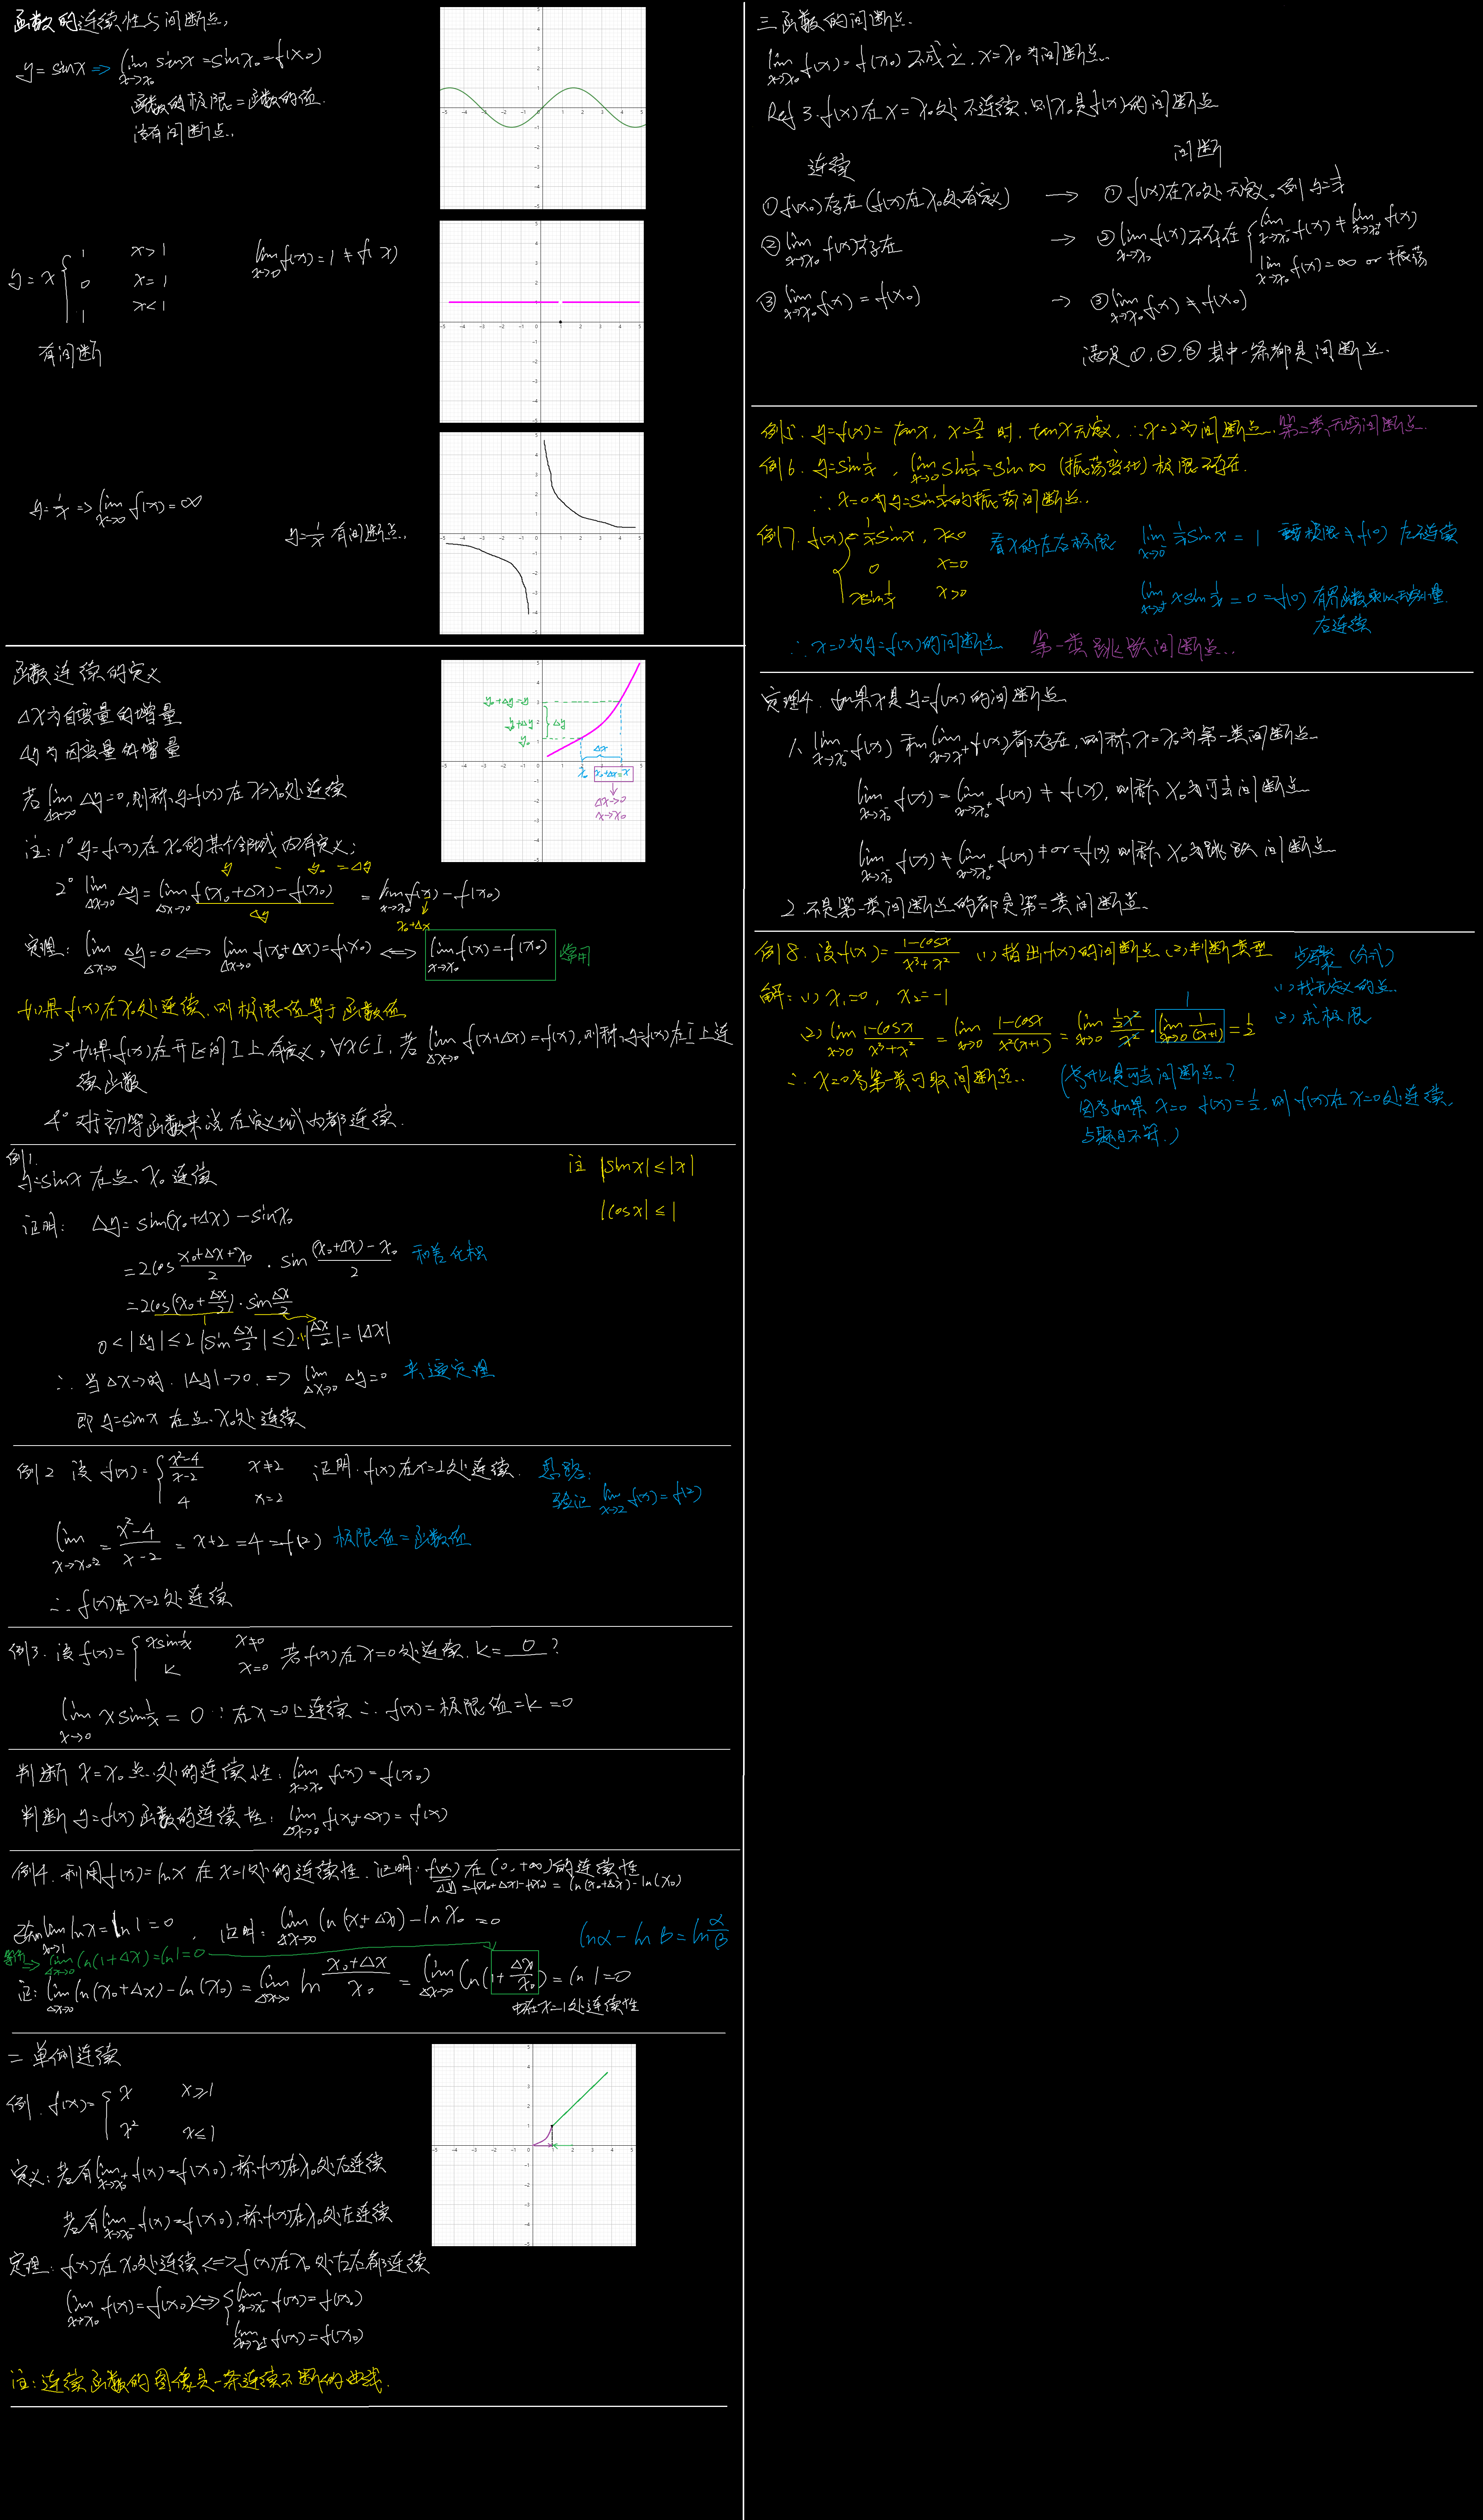 函数的连续性与间断点.
y = sinx ⇒ lim x→x₀ sinx = sinx₀ = f(x₀)
函数的极限 = 函数的值.
没有间断点.
y = x { 1 x>1
0 x=1
1 x<1
lim x→0 f(x) = 1 ≠ f( x)
有间断
y = 1/x ⇒ lim x→0 f(x) = ∞
y = 1/x 有间断点.
函数连续的定义
Δx为自变量的增量
Δy为因变量的增量
若 lim Δx→0 Δy=0, 则称 y=f(x) 在x=x₀处连续
注: 1° y=f(x)在x₀的某个邻域内有定义;
y - y₀ = Δy
2° lim Δx→0 Δy = lim Δx→0 f(x₀+Δx)-f(x₀) = lim x→x₀ f(x) - f(x₀)
Δy
x₀+Δx
定理: lim Δx→0 Δy=0 ⇔ lim Δx→0 f(x₀+Δx)=f(x₀) ⇔ lim x→x₀ f(x)=f(x₀) 常用
如果f(x)在x₀处连续.则极限值等于函数值
3° 如果f(x)在开区间I上有定义, ∀x∈I, 若 lim Δx→0 f(x+Δx)=f(x), 则称y=f(x)在I上连
续函数
4° 对于初等函数来说 在定义域内都连续.
y₀+Δy=y
y₀+Δy } Δy
y₀
Δx
x₀ x₀+Δx=x
Δx→0
x→x₀
例1.
y=sinx 在点 x₀ 连续
注 |sinx|≤|x|
|cosx|≤1
证明: Δy = sin(x₀+Δx) - sinx₀
= 2cos (x₀+Δx+x₀)/2 · sin ((x₀+Δx)-x₀)/2 和差化积
= 2cos(x₀+Δx/2) · sin Δx/2
1
0<|Δy|≤2|sin Δx/2|≤2·|Δx/2|=|Δx|
∴ 当Δx→时. |Δy|→0. ⇒ lim Δx→0 Δy=0 夹逼定理
即 y=sinx 在点 x₀处连续
例2 设 f(x) = { (x²-4)/(x-2) x≠2
4 x=2
证明.f(x)在x=2处连续. 思路:
验证 lim x→2 f(x)=f(2)
lim x→x₀2 = (x²-4)/(x-2) = x+2 = 4 = f(2) 极限值=函数值
∴ f(x)在x=2处连续
例3. 设f(x) = { xsin1/x x≠0
k x=0
若f(x)在x=0处连续. k= 0 ?
lim x→0 xsin1/x = 0 ∵在x=0上连续 ∴ f(x)=极限值=k=0
判断 x=x₀点处的连续性: lim x→x₀ f(x)=f(x₀)
判断 y=f(x)函数的连续性: lim Δx→0 f(x₀+Δx)=f(x)
例4. 利用f(x)=lnx 在x=1处的连续性. 证明: f(x)在(0,+∞)的连续性
Δy = f(x₀+Δx)-f(x₀) = ln(x₀+Δx)-ln(x₀)
lim x→1 lnx = ln1 = 0 , 证明: lim Δx→0 ln(x₀+Δx)-lnx₀ = 0
lnα - lnβ = ln α/β
⇒ lim Δx→0 ln(1+Δx)=ln1=0
证: lim Δx→0 ln(x₀+Δx)-ln(x₀) = lim Δx→0 ln (x₀+Δx)/x₀ = lim Δx→0 ln(1+Δx/x₀) = ln1=0
由在x=1处连续性
二 单侧连续
例. f(x) = { x x≥1
x² x≤1
定义: 若有 lim x→x₀⁺ f(x)=f(x₀), 称f(x)在x₀处右连续
若有 lim x→x₀⁻ f(x)=f(x₀), 称f(x)在x₀处左连续
定理: f(x)在x₀处连续 ⇔ f(x)在x₀处左右都连续
lim x→x₀ f(x)=f(x₀) ⇔ { lim x→x₀⁻ f(x)=f(x₀)
lim x→x₀⁺ f(x)=f(x₀)
注: 连续函数的图像是一条连续不断的曲线.
三 函数的间断点.
lim x→x₀ f(x)=f(x₀) 不成立. x=x₀ 为间断点.
Def 3. f(x)在x=x₀处不连续. 则x₀是f(x)的间断点
连续 间断
① f(x₀)存在(f(x)在x₀处有定义) → ① f(x)在x₀处无定义。例 y=1/x
② lim x→x₀ f(x)存在 → ② lim x→x₀ f(x)不存在 { lim x→x₀⁻ f(x) ≠ lim x→x₀⁺ f(x)
lim x→x₀ f(x)=∞ or 振荡
③ lim x→x₀ f(x)=f(x₀) → ③ lim x→x₀ f(x)≠f(x₀)
满足①,②,③其中一条都是间断点.
例5. y=f(x)= tanx, x=π/2 时. tanx无定义, ∴x=2为间断点. 第二类无穷间断点.
例6. y=sin1/x , lim x→0 sin1/x = sin∞ (振荡变化) 极限不存在.
∴ x=0为y=sin1/x的振荡间断点.
例7. f(x) = { 1/x sinx, x<0
0 x=0
xsin1/x x>0
看x的左右极限 lim x→0⁻ 1/x sinx = 1 极限≠f(0) 左不连续
lim x→0⁺ xsin1/x = 0 = f(0) 有界函数乘以无穷小量.
右连续
∴ x=0为y=f(x)的间断点 第一类跳跃间断点..
定理4. 如果x是y=f(x)的间断点
1. lim x→x₀⁻ f(x) 和 lim x→x⁺ f(x)都存在, 则称 x=x₀为第一类间断点
lim x→x₀⁻ f(x) = lim x→x₀⁺ f(x) ≠ f(x), 则称 x₀为可去间断点
lim x→x₀⁻ f(x) ≠ lim x→x₀⁺ f(x) ≠ or = f(x), 则称 x₀为跳跃间断点
2. 不是第一类间断点的都是第二类间断点.
例8. 设f(x) = (1-cosx)/(x³+x²) (1) 指出f(x)的间断点 (2)判断类型 步骤 (分式)
(1) 找无定义的点.
(2) 求极限
解: (1) x₁=0, x₂=-1
1
(2) lim x→0 (1-cosx)/(x³+x²) = lim x→0 (1-cosx)/(x²(x+1)) = lim x→0 (1/2x²)/x² · lim x→0 1/(x+1) = 1/2
∴ x=0为第一类可取间断点.. (为什么是可去间断点.?
因为如果 x=0 f(x)=1/2. 则f(x)在x=0处连续.
与题目不符.)